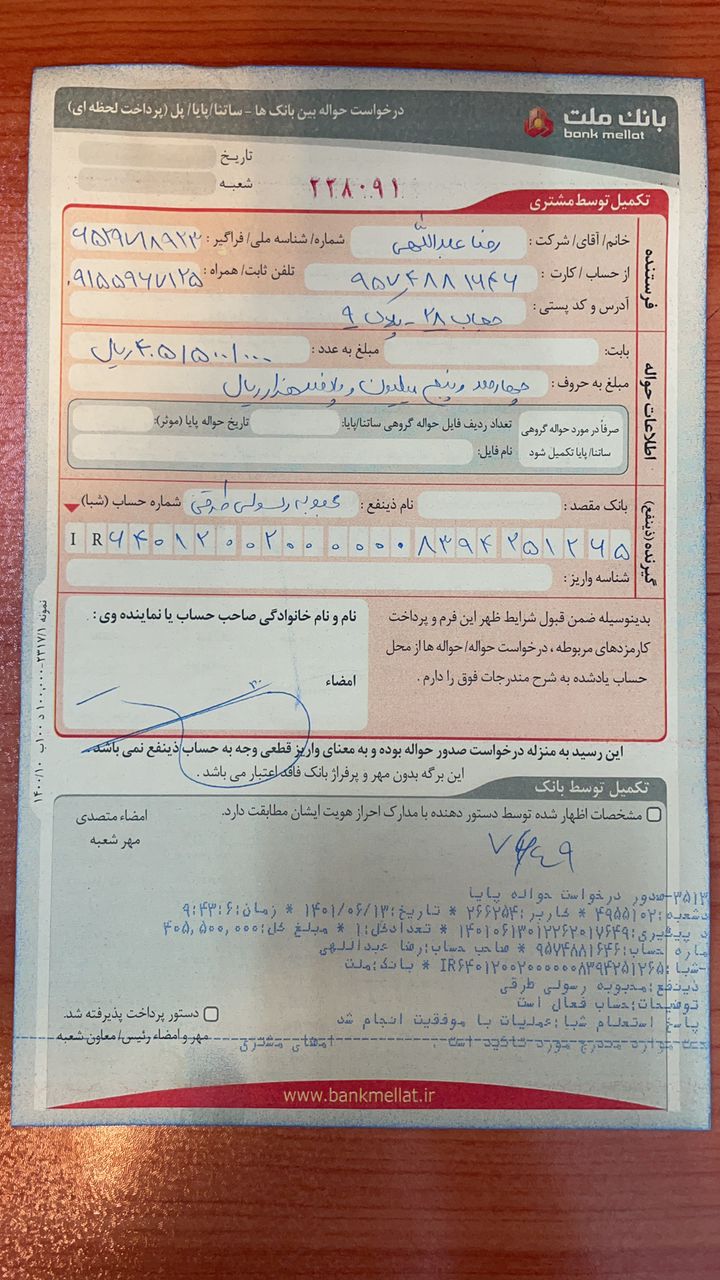 بانک ملت
bank mellat
درخواست حواله بین بانک ها - ساتنا/پایا/ پل (پرداخت لحظه ای)
تاریخ
شعبه
۲۲۸۰۹۱
تکمیل توسط مشتری
فرستنده
خانم/ آقای/ شرکت : رضا عبداللهی شماره/ شناسه ملی/ فراگیر :
از حساب / کارت : ۹۵۷۴۸۸۱۶۴۶ تلفن ثابت/ همراه : ۰۹۱۵۵۹۶۷۱۲۵
آدرس و کد پستی : ۲۸ - پلاک ۹
اطلاعات حواله
بابت: مبلغ به عدد : ۴۰۵/۵۰۰/۰۰۰ ریال
مبلغ به حروف : چهارصد و پنج میلیون و پانصد هزار ریال
صرفاً در مورد حواله گروهی ساتنا/ پایا تکمیل شود
تعداد ردیف فایل حواله گروهی ساتنا/پایا: تاریخ حواله پایا (موثر):
نام فایل:
گیرنده (ذینفع)
بانک مقصد : نام ذینفع : محبوبه رسولی طرقی شماره حساب (شبا)
IR ۶۴۰۱۲۰۰۲۰۰۰۰۰۰۸۳۹۴۲۵۱۲۶۵
شناسه واریز :
بدینوسیله ضمن قبول شرایط ظهر این فرم و پرداخت
کارمزدهای مربوطه ، درخواست حواله/ حواله ها از محل
حساب یادشده به شرح مندرجات فوق را دارم .
نام و نام خانوادگی صاحب حساب یا نماینده وی :
امضاء
این رسید به منزله درخواست صدور حواله بوده و به معنای واریز قطعی وجه به حساب ذینفع نمی باشد .
این برگه بدون مهر و پرفراژ بانک فاقد اعتبار می باشد .
نمونه ۲۳۱۷/۱-۱۰۰,۰۰۰ د ۱۰۰ب ۱۴۰۰/۱۰
تکمیل توسط بانک
مشخصات اظهار شده توسط دستور دهنده با مدارک احراز هویت ایشان مطابقت دارد.
امضاء متصدی
مهر شعبه
۳۵۱۳-صدور درخواست حواله پایا
دشعبه:۴۹۵۵۱۰۲ * کاربر:۲۶۶۲۵۴ * تاریخ:۱۴۰۱/۰۶/۱۳ * زمان:۹:۴۳:۶
د پیگیری:۱۴۰۱۰۶۱۳۰۱۲۲۶۲۰۱۷۶۴۹ * تعدادکل:۱ * مبلغ کل:۴۰۵,۵۰۰,۰۰۰
ماره حساب:۹۵۷۴۸۸۱۶۴۶ * صاحب حساب:رضا عبداللهی
-شبا:IR۶۴۰۱۲۰۰۲۰۰۰۰۰۰۸۳۹۴۲۵۱۲۶۵ * بانک:ملت
ذینفع:محبوبه رسولی طرقی
توضیحات:حساب فعال است
پاسخ استعلام شبا:عملیات با موفقیت انجام شد
حت موارد مندرج مورد تائید است . امضای مشتری
دستور پرداخت پذیرفته شد.
مهر و امضاء رئیس/ معاون شعبه
www.bankmellat.ir